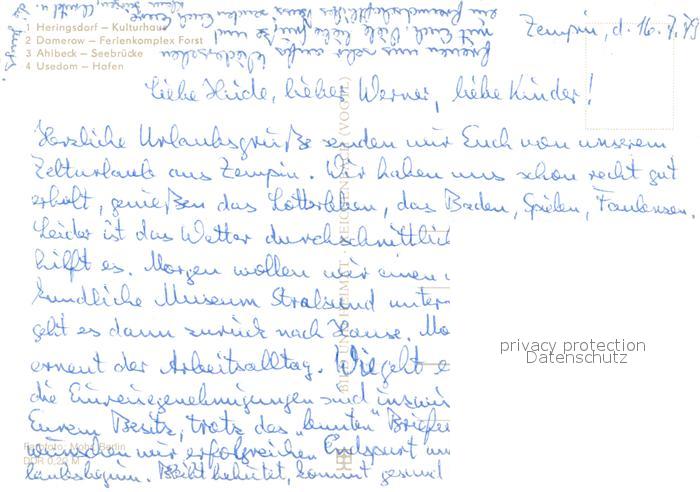 1 Heringsdorf – Kulturhaus
2 Damerow – Ferienkomplex Forst
3 Ahlbeck – Seebrücke
4 Usedom – Hafen
Zempin, d. 16.7.89
Liebe Heide, lieber Werner, liebe Kinder!
Herzliche Urlaubsgrüße senden wir Euch von unserem
Zelturlaub aus Zempin. Wir haben uns schon recht gut
erholt, genießen das Lotterleben, das Baden, Spielen, Faulensen.
Leider ist das Wetter durchschnittlich
hilft es. Morgen wollen wir einen
kundliche Museum Stralsund unter
geht es dann zurück nach Hause. Mo
erneut der Arbeitsalltag. Wie geht e
die Einreisegenehmigungen sind inzwi
Eurem Besitz, trotz das „bunten“ Briefes
wünschen wir erfolgreichen Endspurt
laubsbeginn. Bleibt behütet, kommt gesund
freuen uns sehr aufs Wiedersehen
mit Euch. Viele liebe Grüße und
privacy protection
Datenschutz
DDR 0,20 M